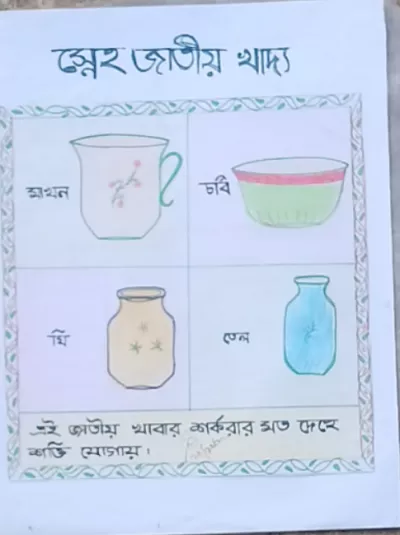 স্নেহ জাতীয় খাদ্য
মাখন
চর্বি
ঘি
তেল
এই জাতীয় খাবার শর্করার মত দেহে
শক্তি যোগায়।